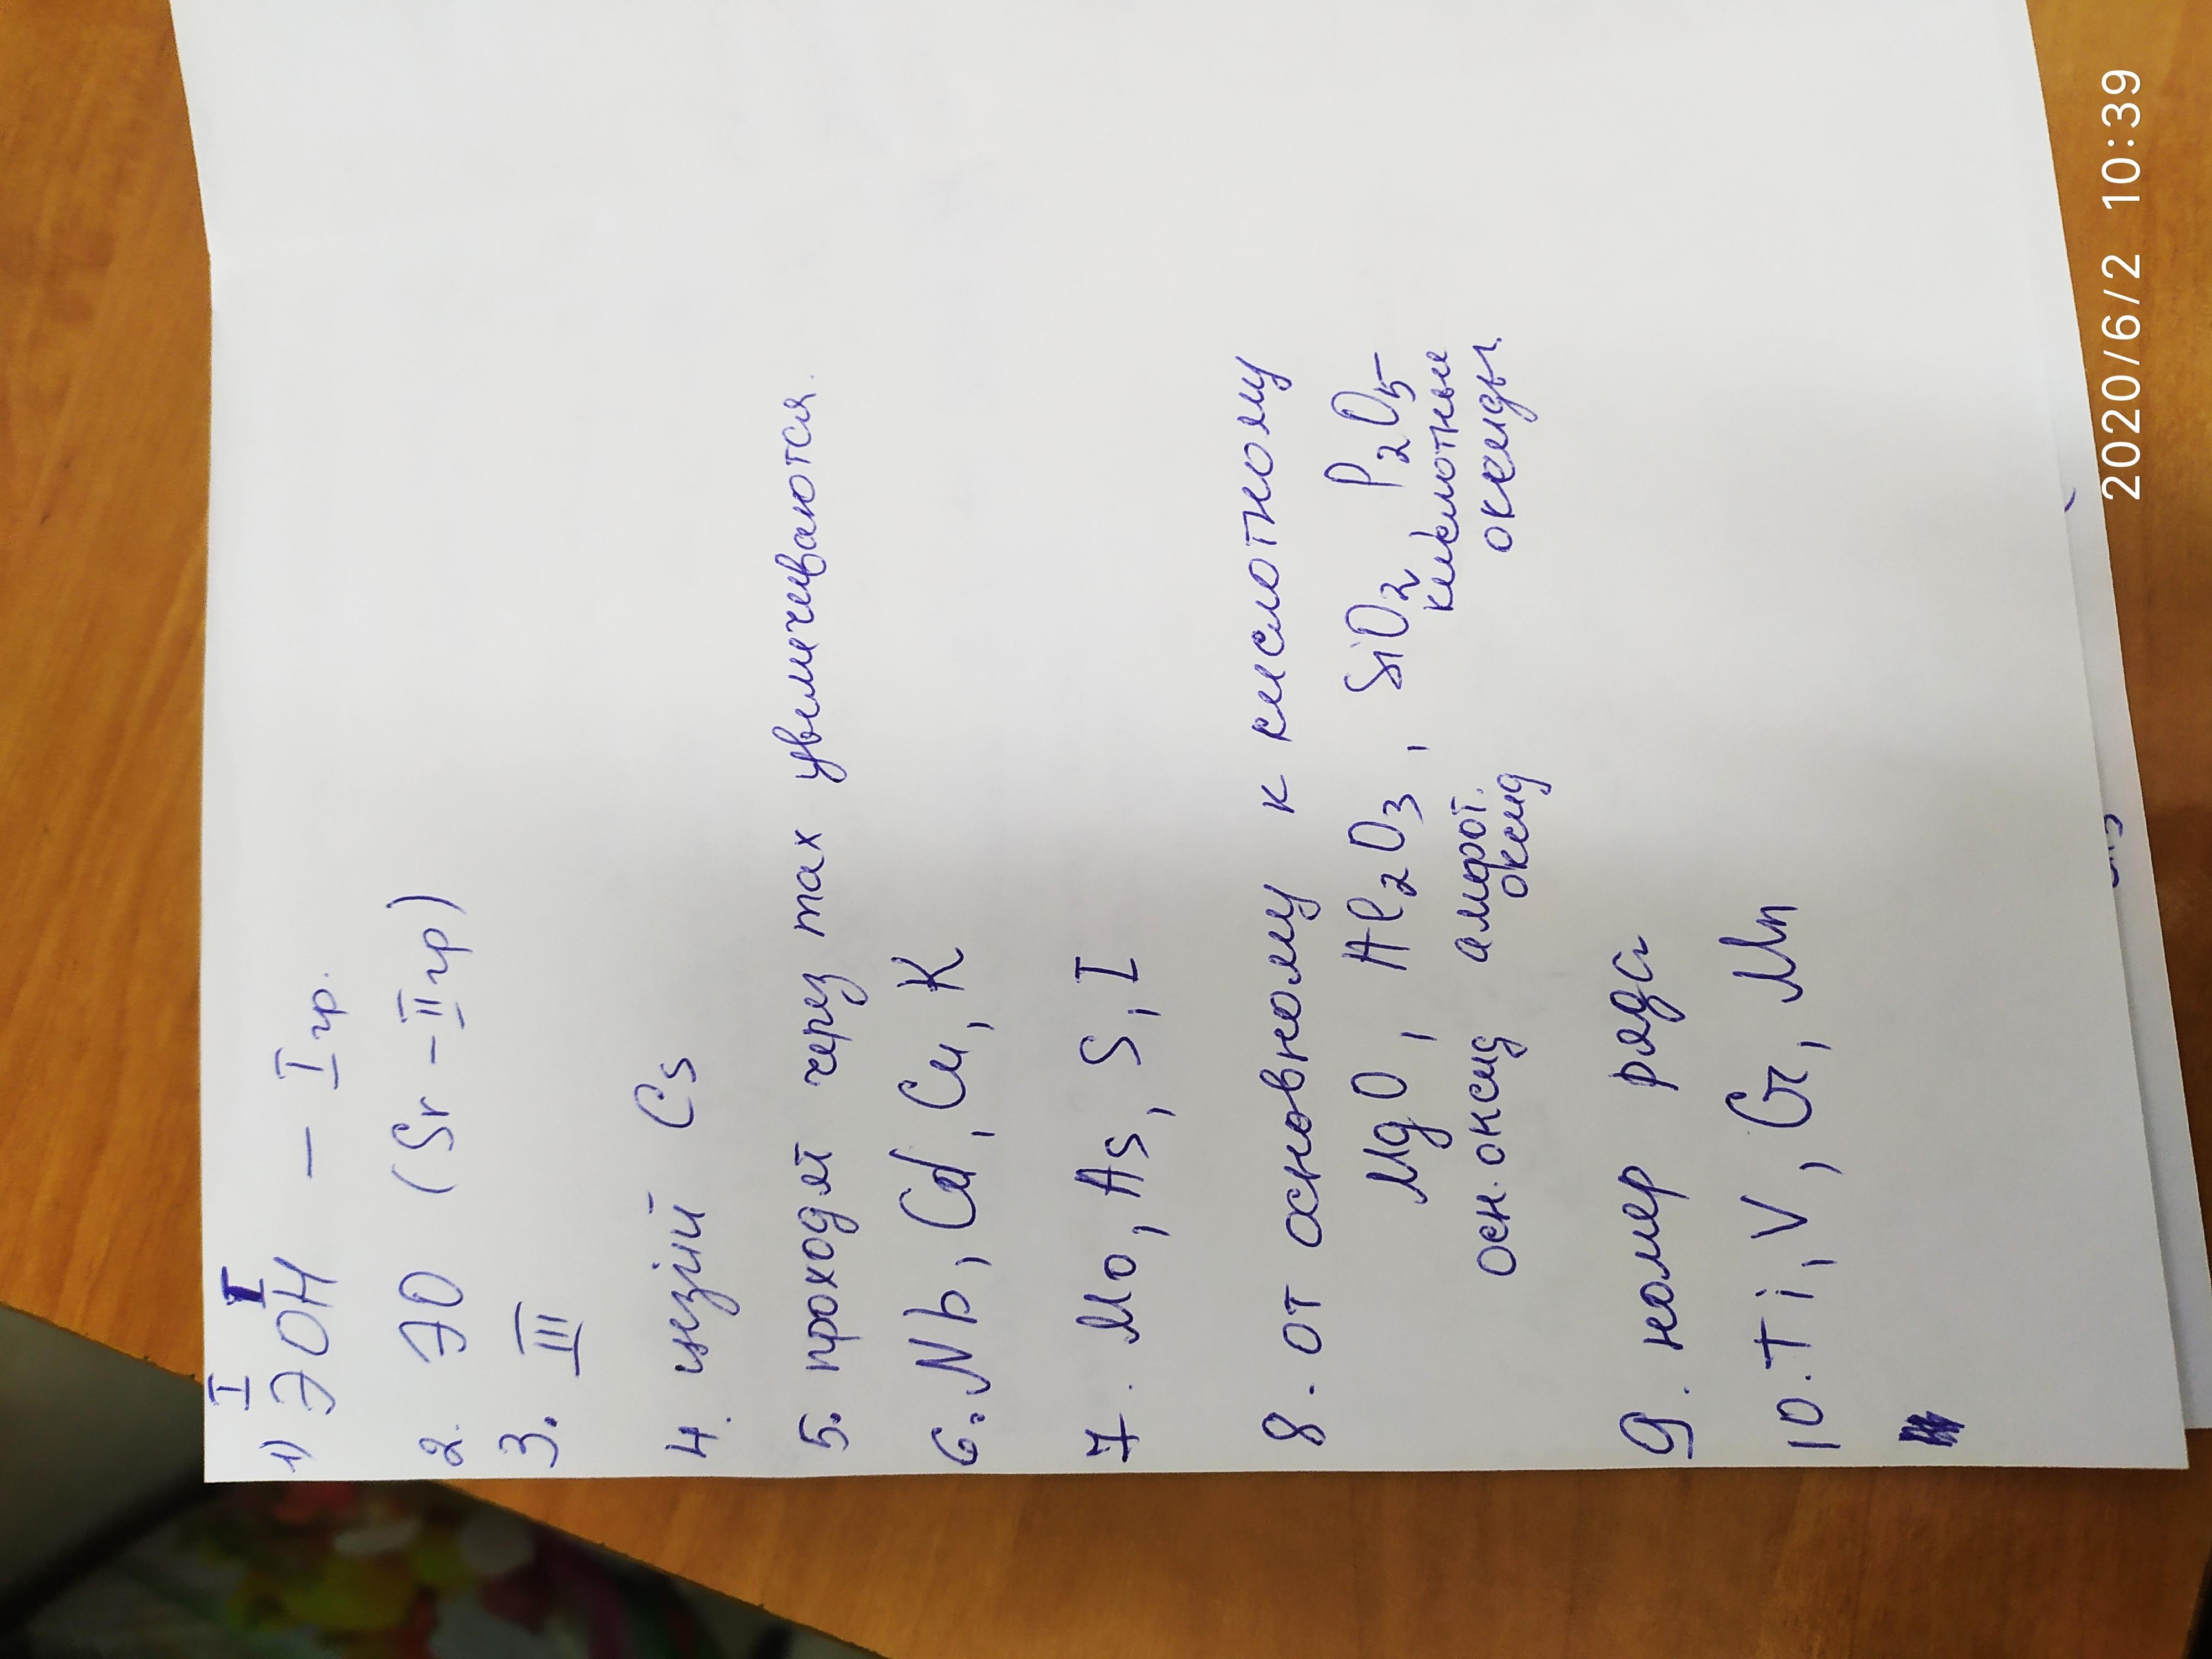 I I
1) ЭОН — I гр.
2. ЭО (Sr – II гр)
3. III
4. цезий Cs
5. проходят через max увеличиваются.
6. Nb, Cd, Cu, K
7. Mo, As, S, I
8. от основному к кислотному
MgO, Al2O3, SiO2 P2O5
осн. оксид амфот. кислотные
оксид оксиды.
9. номер ряда
10. Ti, V, Cr, Mn
2020/6/2 10:39